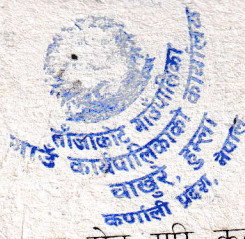 ताँजाकोट गाउँपालिका
गाउँ कार्यपालिकाको कार्यालय
चाखुर, हुम्ला
कर्णाली प्रदेश, नेपाल